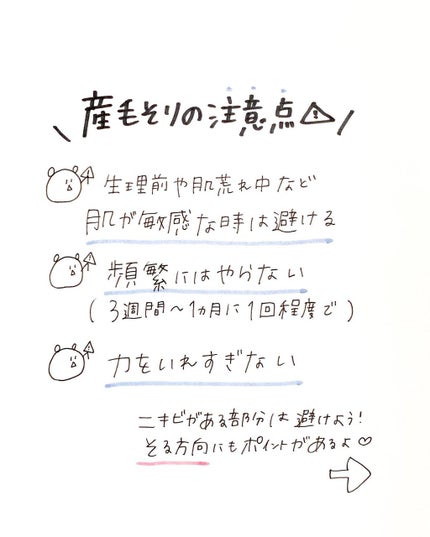 \ 産毛そりの注意点⚠ /
生理前や肌荒れ中など
肌が敏感な時は避ける
頻繁にはやらない
(3週間〜1ヵ月に1回程度で)
力をいれすぎない
ニキビがある部分は避けよう!
そる方向にもポイントがあるよ♡